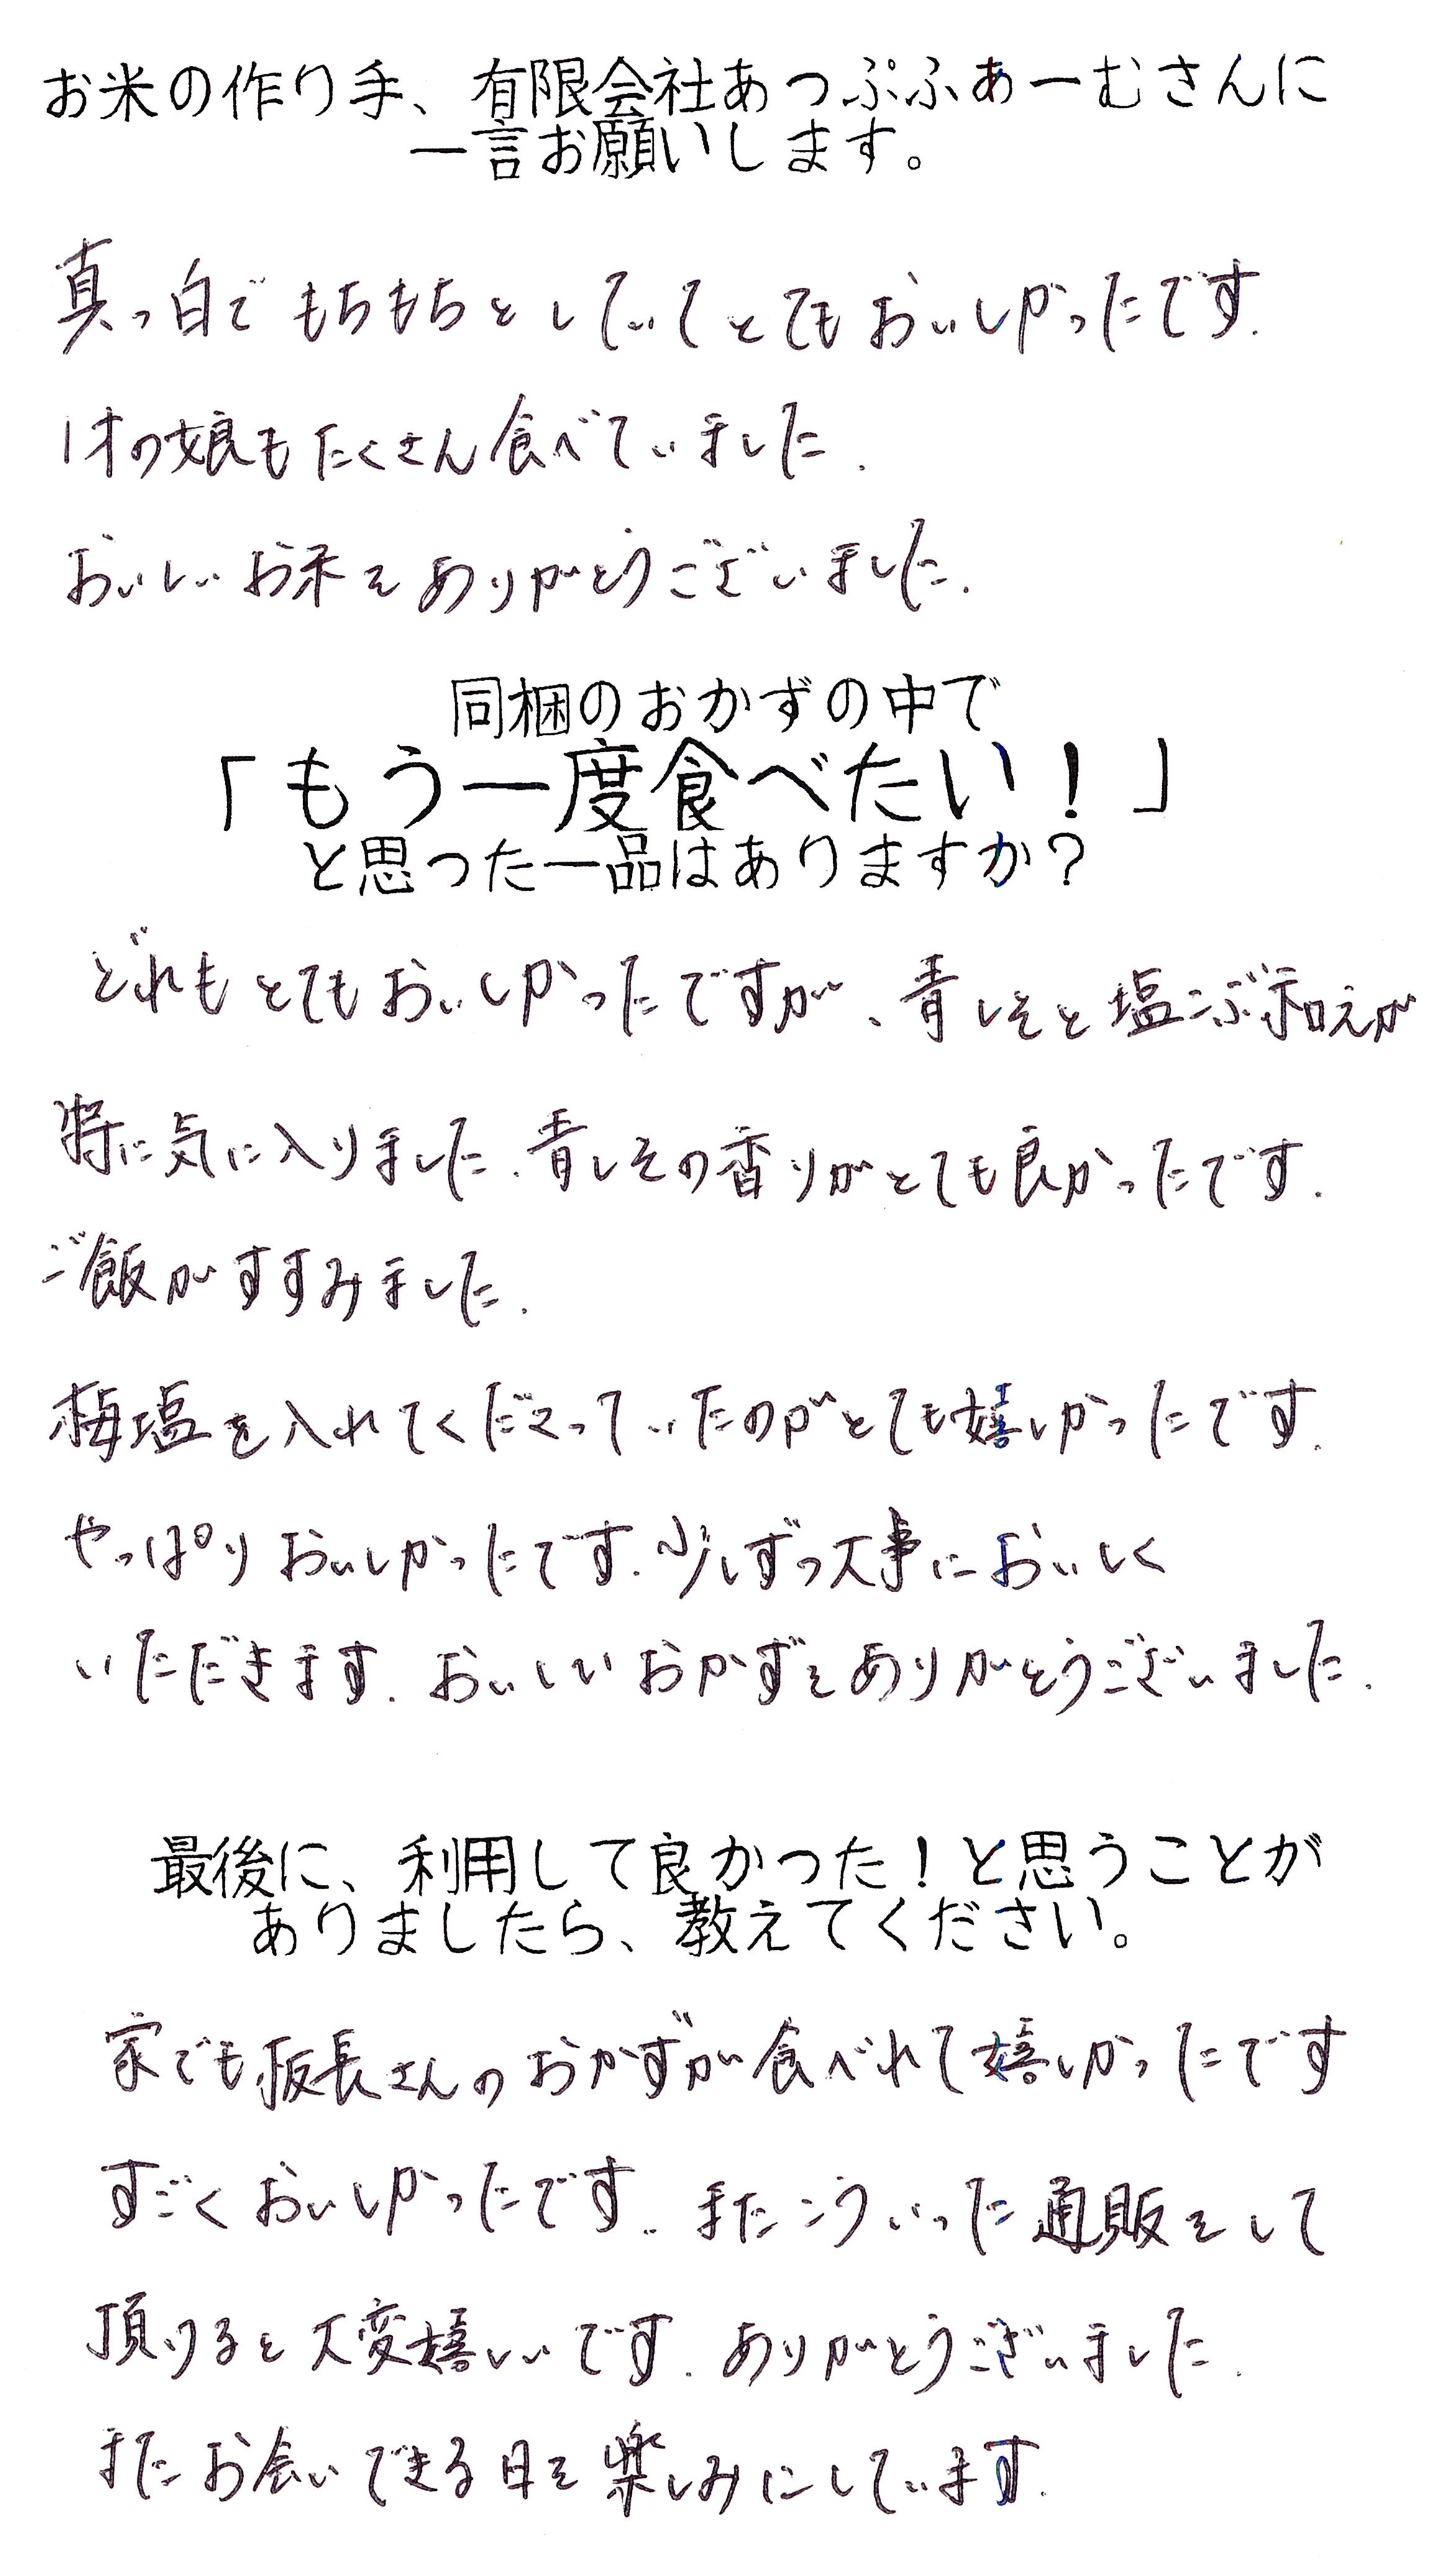 お米の作り手、有限会社あっぷふぁーむさんに
一言お願いします。
真っ白でもちもちとしていてとてもおいしかったです.
1才の娘もたくさん食べていました.
おいしいお米をありがとうございました.
同梱のおかずの中で
「もう一度食べたい！」
と思った一品はありますか？
どれもとてもおいしかったですが、青しそと塩こぶ和えが
特に気に入りました.青しその香りがとても良かったです.
ご飯がすすみました.
梅塩を入れてくださっていたのがとても嬉しかったです.
やっぱりおいしかったです.少しずつ大事においしく
いただきます.おいしいおかずをありがとうございました.
最後に、利用して良かった！と思うことが
ありましたら、教えてください。
家でも板長さんのおかずが食べれて嬉しかったです
すごくおいしかったです..またこういった通販をして
頂けると大変嬉しいです.ありがとうございました.
またお会いできる日を楽しみにしています.